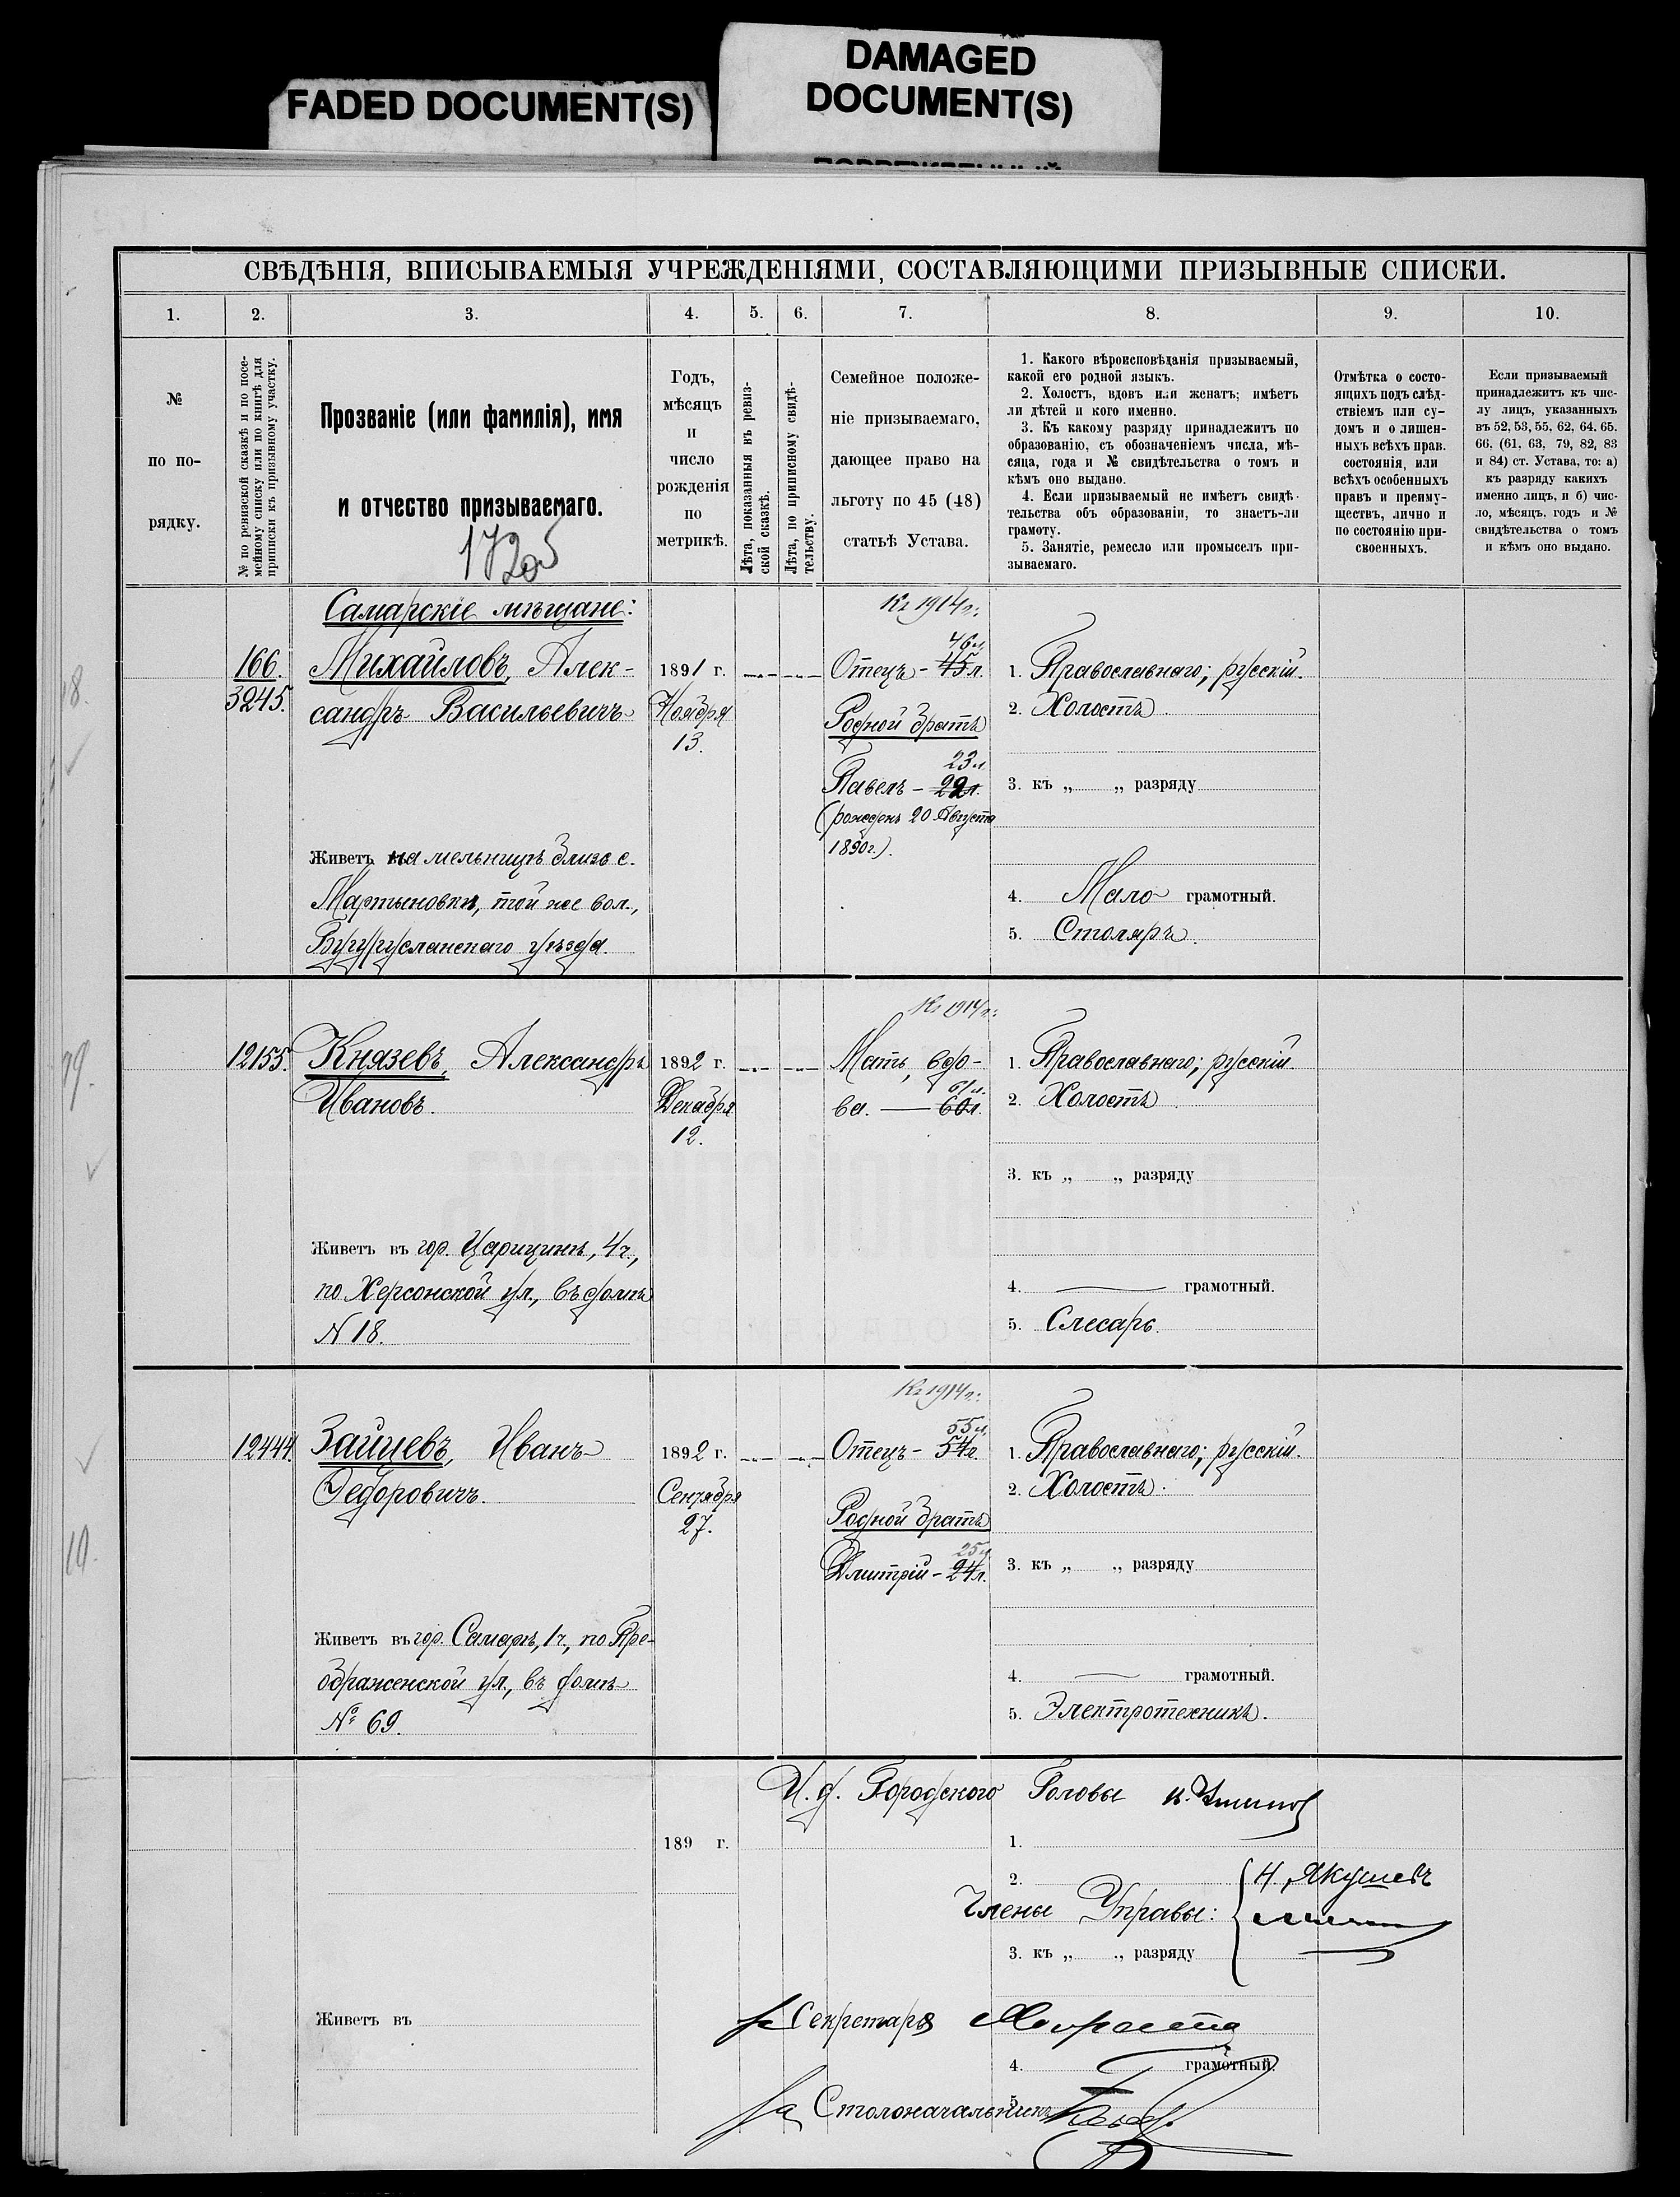 FADED DOCUMENT(S)
DAMAGED
DOCUMENT(S)
СВѢДѢНІЯ, ВПИСЫВАЕМЫЯ УЧРЕЖДЕНІЯМИ, СОСТАВЛЯЮЩИМИ ПРИЗЫВНЫЕ СПИСКИ.
1. 2. 3. 4. 5. 6. 7. 8. 9. 10.
№
по по-
рядку.
№ по ревизской сказкѣ и по посе-
мейному списку или по книгѣ для
приписки къ призывному участку.
Прозваніе (или фамилія), имя
и отчество призываемаго.
17205
Годъ,
мѣсяцъ
и
число
рожденія
по
метрикѣ.
Лѣта, показанныя въ ревиз-
ской сказкѣ.
Лѣта, по приписному свидѣ-
тельству.
Семейное положе-
ніе призываемаго,
дающее право на
льготу по 45 (48)
статьѣ Устава.
1. Какого вѣроисповѣданія призываемый,
какой его родной языкъ.
2. Холостъ, вдовъ или женатъ; имѣетъ
ли дѣтей и кого именно.
3. Къ какому разряду принадлежитъ по
образованію, съ обозначеніемъ числа, мѣ-
сяца, года и № свидѣтельства о томъ и
кѣмъ оно выдано.
4. Если призываемый не имѣетъ свидѣ-
тельства объ образованіи, то знаетъ-ли
грамоту.
5. Занятіе, ремесло или промыселъ при-
зываемаго.
Отмѣтка о состо-
ящихъ подъ слѣд-
ствіемъ или су-
домъ и о лишен-
ныхъ всѣхъ прав.
состоянія, или
всѣхъ особенныхъ
правъ и преиму-
ществъ, лично и
по состоянію при-
своенныхъ.
Если призываемый
принадлежитъ къ чис-
лу лицъ, указанныхъ
въ 52, 53, 55, 62, 64, 65.
66, (61, 63, 79, 82, 83
и 84) ст. Устава, то: а)
къ разряду какихъ
именно лицъ, и б) чис-
ло, мѣсяцъ, годъ и №
свидѣтельства о томъ
и кѣмъ оно выдано.
Самарскіе мѣщане:
166.
3245.
Михайловъ, Алек-
сандръ Васильевичъ
Живетъ на мельницѣ близь с.
Мартыновки, той же вол.,
Бугурусланскаго уѣзда.
1891 г.
Ноября
13.
Къ 1914 г.:
46 л.
Отецъ – 45 л.
Родной братъ
23 л.
Павелъ – 22 л.
(рожденъ 20 Августа
1890 г.).
1. Православнаго; русскій.
2. Холостъ.
3. къ „ „ разряду
4. Мало грамотный.
5. Столяръ.
12155.
Князевъ, Александръ
Ивановъ.
Живетъ въ гор. Царицынѣ, 4 ч.,
по Херсонской ул., въ домѣ
N 18.
1892 г.
Декабря
12.
Къ 1914 г.:
Мать, вдо-
61 л.
ва. — 60 л.
1. Православнаго; русскій.
2. Холостъ.
3. къ „ „ разряду
4. грамотный.
5. Слесарь.
12444.
Зайцевъ, Иванъ
Ѳедоровичъ.
Живетъ въ гор. Самарѣ, 1 ч., по Пре-
ображенской ул., въ домѣ
№ 69.
1892 г.
Сентября
27.
Къ 1914 г.:
55 л.
Отецъ – 54 г.
Родной братъ
25 л.
Дмитрій – 24 л.
1. Православнаго; русскій.
2. Холостъ.
3. къ „ „ разряду
4. грамотный.
5. Электротехникъ.
И. д. Городского Головы
189 г.
1.
2.
Члены Управы: Н. Якушевъ
3. къ „ „ разряду
Живетъ въ
Секретаря
4. грамотный.
5.
За Столоначальника